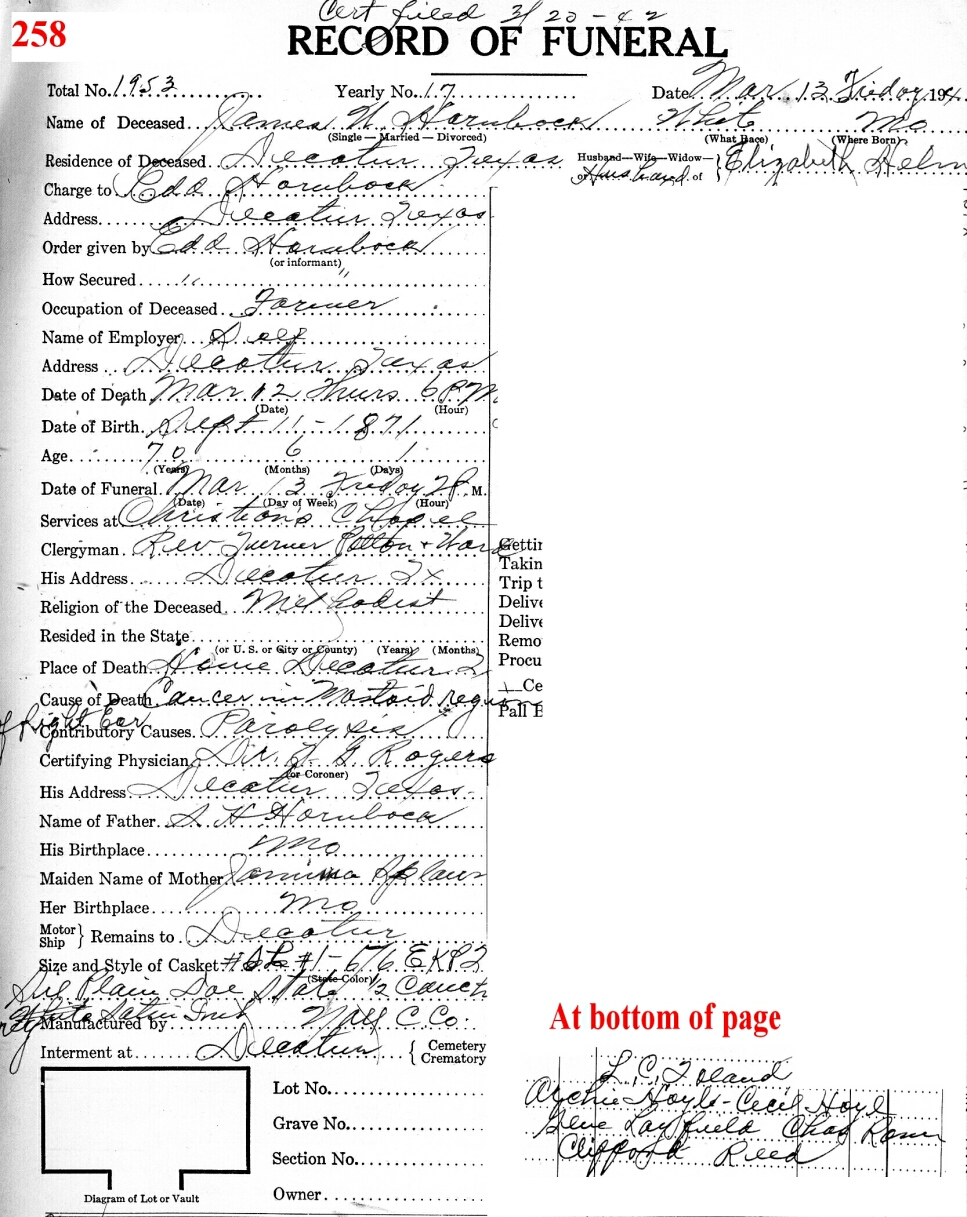 Cert filed 3/20-42
258
RECORD OF FUNERAL
Total No. 1953 Yearly No. 17 Date Mar. 13 Friday, 194
Name of Deceased James W. Hornback White Mo
(Single — Married — Divorced) (What Race) (Where Born)
Residence of Deceased Decatur Texas Husband—Wife—Widow— or Husband of } Elizabeth Helm
Charge to Edd Hornback
Address Decatur Texas
Order given by Edd Hornback
(or informant)
How Secured " "
Occupation of Deceased Farmer
Name of Employer Self
Address Decatur Texas
Date of Death Mar 12 Thurs 6 P.M.
(Date) (Hour)
Date of Birth Sept 11 - 1871
Age 70 6 1
(Years) (Months) (Days)
Date of Funeral Mar 13 Friday 2 P. M.
(Date) (Day of Week) (Hour)
Services at Christians Chapel
Clergyman Rev Turner Patton +
Gettin
His Address Decatur Tx
Takin
Trip t
Religion of the Deceased Methodist
Delive
Delive
Resided in the State
Remo
(or U. S. or City or County) (Years) (Months)
Place of Death Home Decatur
Procu
Cause of Death Cancer in Mastoid region
Ce
of Right Ear
Pall B
Contributory Causes Paralysis
Certifying Physician Dr. G Rogers
(or Coroner)
His Address Decatur Texas
Name of Father S. H Hornback
His Birthplace Mo
Maiden Name of Mother Jemima
Her Birthplace Mo
Motor Ship } Remains to Decatur
Size and Style of Casket #1 - 676 EKP2
(State Color)
Plain Doe 1/2 Couch
White Satin Int
Manufactured by C. Co.
Interment at Decatur { Cemetery Crematory
At bottom of page
L. C. Island
Archie Hoyl - Cecil Hoyl
Gene Layfield Chas
Clifford Reed
Lot No.
Grave No.
Section No.
Owner
Diagram of Lot or Vault